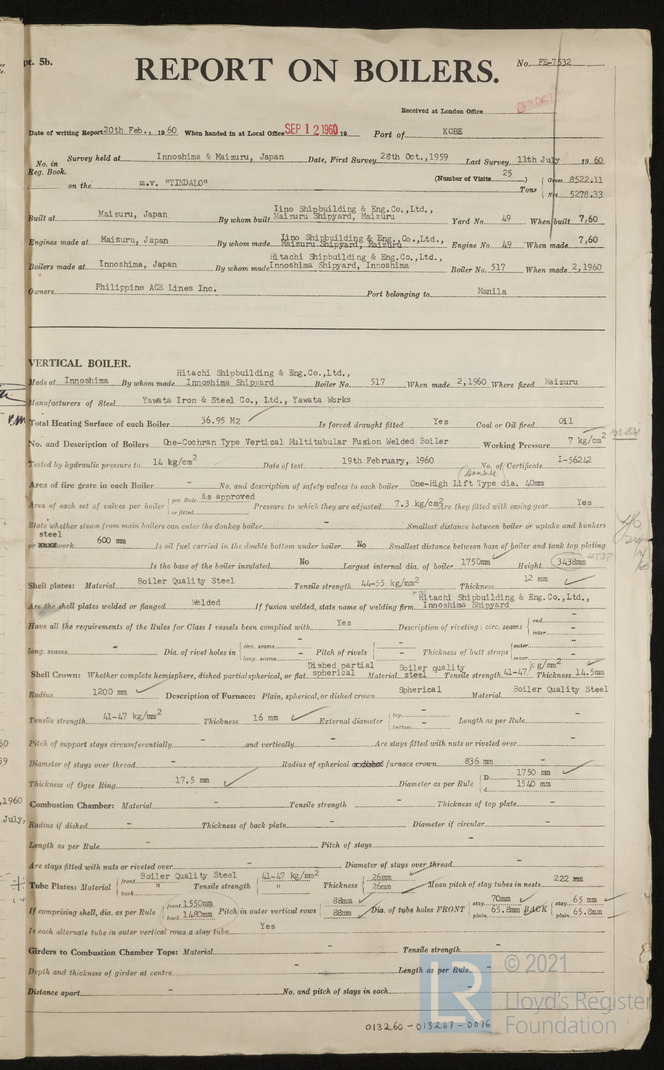 pt. 5b.
No. FE-7532
REPORT ON BOILERS.
Received at London Office
Date of writing Report 20th Feb., 1960 When handed in at Local Office SEP 12 1960 19 Port of KOBE
No. in Reg. Book. Survey held at Innoshima & Maizuru, Japan Date, First Survey 28th Oct., 1959 Last Survey 11th July 1960
(Number of Visits 25 )
on the m.v. "TINDALO" Tons { Gross 8522.11
Net 5278.33
Built at Maizuru, Japan By whom built Iino Shipbuilding & Eng.Co.,Ltd., Maizuru Shipyard, Maizuru Yard No. 49 When built 7,60
Engines made at Maizuru, Japan By whom made Iino Shipbuilding & Eng.,Co.,Ltd., Maizuru Shipyard, Maizuru Engine No. 49 When made 7,60
Boilers made at Innoshima, Japan By whom made Hitachi Shipbuilding & Eng.Co.,Ltd., Innoshima Shipyard, Innoshima Boiler No. 517 When made 2,1960
Owners Philippine ACE Lines Inc. Port belonging to Manila
VERTICAL BOILER.
Made at Innoshima By whom made Hitachi Shipbuilding & Eng.Co.,Ltd., Innoshima Shipyard Boiler No. 517 When made 2,1960 Where fixed Maizuru
Manufacturers of Steel Yawata Iron & Steel Co., Ltd., Yawata Works
Total Heating Surface of each Boiler 36.95 M2 Is forced draught fitted Yes Coal or Oil fired Oil
No. and Description of Boilers One-Cochran Type Vertical Multitubular Fusion Welded Boiler Working Pressure 7 kg/cm2
Tested by hydraulic pressure to 14 kg/cm2 Date of test 19th February, 1960 No. of Certificate I-56242
Area of fire grate in each Boiler - No. and description of safety valves to each boiler One-High (Double) Lift Type dia. 40mm
Area of each set of valves per boiler { per Rule As approved as fitted Pressure to which they are adjusted 7.3 kg/cm2 Are they fitted with easing gear Yes
State whether steam from main boilers can enter the donkey boiler - Smallest distance between boiler or uptake and bunkers
or steel work 600 mm Is oil fuel carried in the double bottom under boiler No Smallest distance between base of boiler and tank top plating
- Is the base of the boiler insulated No Largest internal dia. of boiler 1750mm Height 3438mm 4538
Shell plates: Material Boiler Quality Steel Tensile strength 44-55 kg/mm2 Thickness 12 mm
Are the shell plates welded or flanged Welded If fusion welded, state name of welding firm Hitachi Shipbuilding & Eng.Co.,Ltd., Innoshima Shipyard
Have all the requirements of the Rules for Class I vessels been complied with Yes Description of riveting: circ. seams { end - inter. -
long. seams - Dia. of rivet holes in { circ. seams - long. seams - Pitch of rivets { - - Thickness of butt straps { outer - inner -
Shell Crown: Whether complete hemisphere, dished partial spherical, or flat Dished partial spherical Material Boiler quality steel Tensile strength 41-47 kg/mm2 Thickness 14.5mm
Radius 1200 mm Description of Furnace: Plain, spherical, or dished crown Spherical Material Boiler Quality Steel
Tensile strength 41-47 kg/mm2 Thickness 16 mm External diameter { top - bottom - Length as per Rule -
Pitch of support stays circumferentially - and vertically - Are stays fitted with nuts or riveted over -
Diameter of stays over thread - Radius of spherical or dished furnace crown 836 mm -
Thickness of Ogee Ring 17.5 mm Diameter as per Rule { D 1750 mm d 1540 mm
Combustion Chamber: Material - Tensile strength - Thickness of top plate -
Radius if dished - Thickness of back plate - Diameter if circular -
Length as per Rule - Pitch of stays -
Are stays fitted with nuts or riveted over - Diameter of stays over thread -
Tube Plates: Material { front Boiler Quality Steel back " Tensile strength { 41-47 kg/mm2 " Thickness { 26mm 26mm Mean pitch of stay tubes in nests 222 mm
If comprising shell, dia. as per Rule { front 1550mm back 1480mm Pitch in outer vertical rows { 88mm 88mm Dia. of tube holes FRONT { stay 70mm plain 65.8mm BACK { stay 65 mm plain 65.8mm
Is each alternate tube in outer vertical rows a stay tube Yes
Girders to Combustion Chamber Tops: Material - Tensile strength -
Depth and thickness of girder at centre - Length as per Rule -
Distance apart - No. and pitch of stays in each -
013260-013267-0076
© 2021
LR Lloyd's Register
Foundation